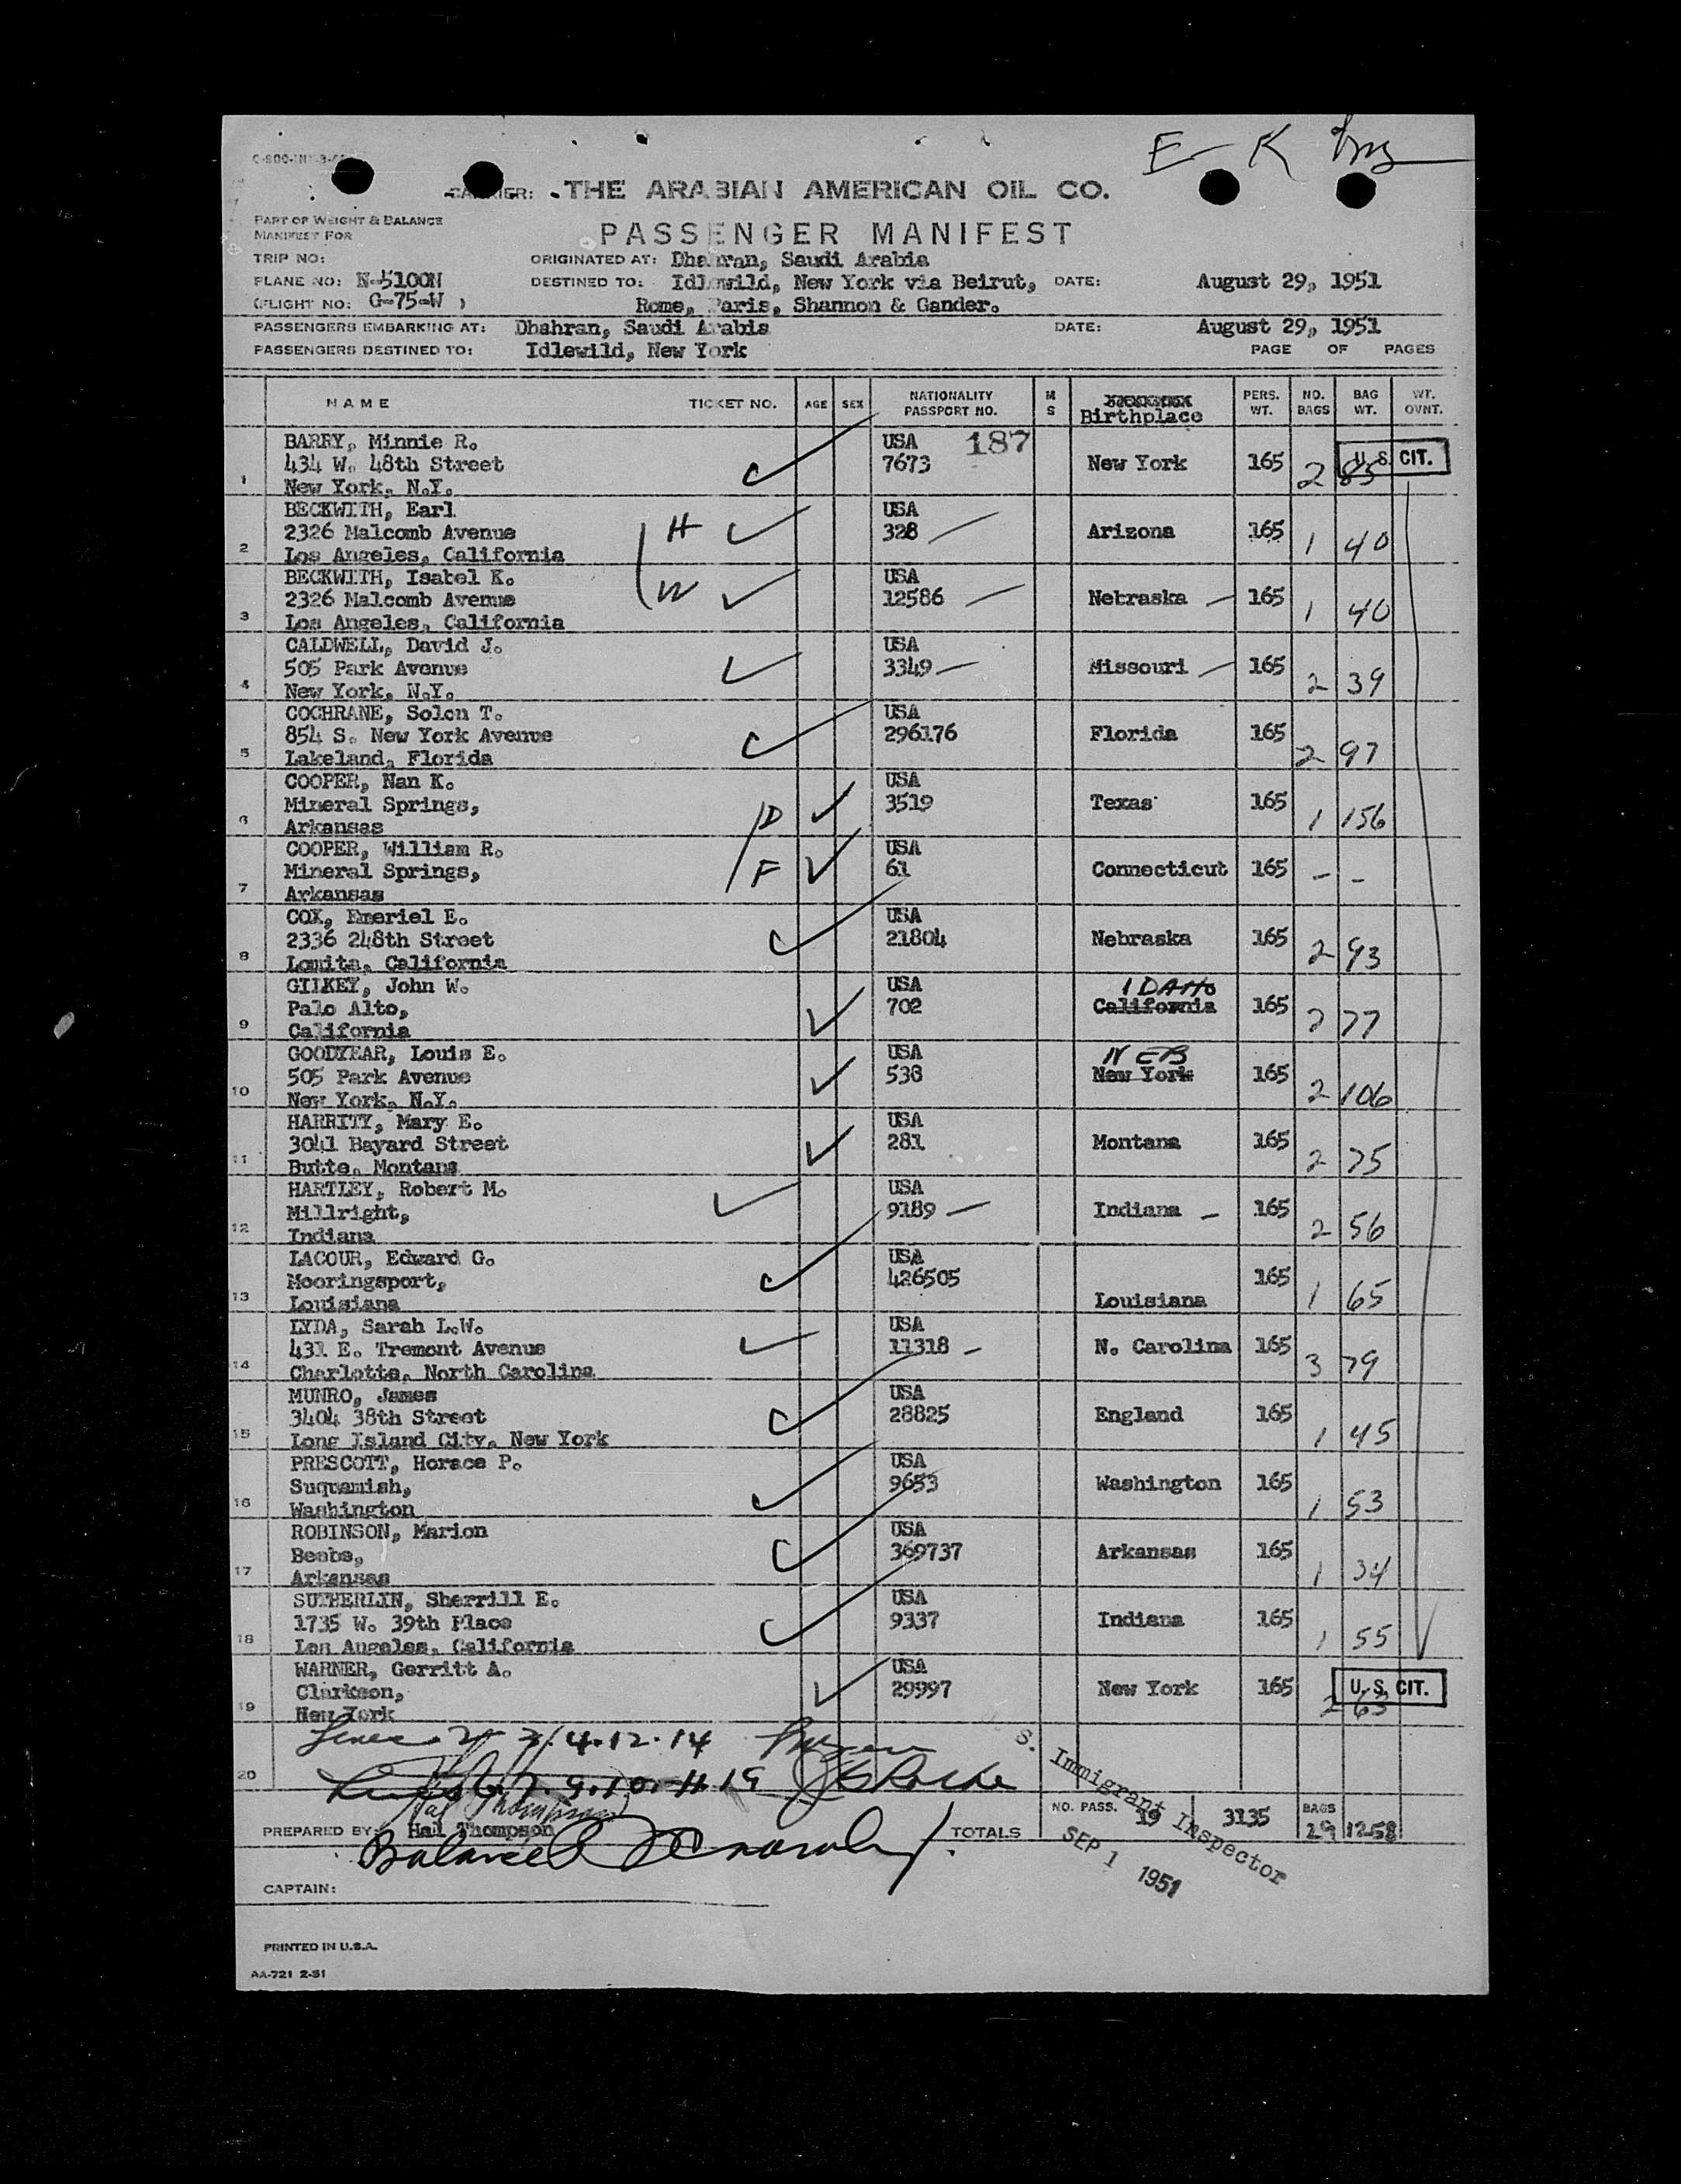 E K
CARRIER: THE ARABIAN AMERICAN OIL CO.
PART OF WEIGHT & BALANCE
MANIFEST FOR
PASSENGER MANIFEST
TRIP NO:
ORIGINATED AT: Dhahran, Saudi Arabia
PLANE NO: N-5100N
DESTINED TO: Idlewild, New York via Beirut, DATE: August 29, 1951
(FLIGHT NO: G-75-W )
Rome, Paris, Shannon & Gander.
PASSENGERS EMBARKING AT: Dhahran, Saudi Arabia DATE: August 29, 1951
PASSENGERS DESTINED TO: Idlewild, New York PAGE OF PAGES
NAME TICKET NO. AGE SEX NATIONALITY PASSPORT NO. M S Birthplace PERS. WT. NO. BAGS BAG WT. WT. OVNT.
BARRY, Minnie R. USA 187
434 W. 48th Street 7673 New York 165 2 85 U.S. CIT.
1 New York, N.Y.
BECKWITH, Earl USA
2326 Malcomb Avenue H 328 Arizona 165 1 40
2 Los Angeles, California
BECKWITH, Isabel K. USA
2326 Malcomb Avenue W 12586 Nebraska 165 1 40
3 Los Angeles, California
CALDWELL, David J. USA
505 Park Avenue 3349 Missouri 165 2 39
4 New York, N.Y.
COCHRANE, Solon T. USA
854 S. New York Avenue 296176 Florida 165 2 97
5 Lakeland, Florida
COOPER, Nan K. USA
Mineral Springs, D 3519 Texas 165 1 156
6 Arkansas
COOPER, William R. USA
Mineral Springs, F 61 Connecticut 165 - -
7 Arkansas
COX, Emeriel E. USA
2336 248th Street 21804 Nebraska 165 2 93
8 Lomita, California
GILKEY, John W. USA IDAHO
Palo Alto, 702 California 165 2 77
9 California
GOODYEAR, Louis E. USA NEB
505 Park Avenue 538 New York 165 2 106
10 New York, N.Y.
HARRITY, Mary E. USA
3041 Bayard Street 281 Montana 165 2 75
11 Butte, Montana
HARTLEY, Robert M. USA
Millright, 9189 Indiana 165 2 56
12 Indiana
LACOUR, Edward G. USA
Mooringsport, 426505 165 1 65
13 Louisiana Louisiana
LYDA, Sarah L.W. USA
431 E. Tremont Avenue 11318 N. Carolina 165 3 79
14 Charlotte, North Carolina
MUNRO, James USA
3404 38th Street 28825 England 165 1 45
15 Long Island City, New York
PRESCOTT, Horace P. USA
Suquamish, 9653 Washington 165 1 53
16 Washington
ROBINSON, Marion USA
Beebe, 369737 Arkansas 165 1 34
17 Arkansas
SUTHERLIN, Sherrill E. USA
1735 W. 39th Place 9337 Indiana 165 1 55
18 Los Angeles, California
WARNER, Gerritt A. USA
Clarkson, 29997 New York 165 2 63 U.S. CIT.
19 New York
3.4.12.14
20 6.7.9.10.11.19
S. Immigrant Inspector
SEP 1 1951
Hal Thompson
PREPARED BY: Hal Thompson TOTALS NO. PASS. 19 3135 BAGS 29 1258
Balance
CAPTAIN:
PRINTED IN U.S.A.
AA-721 2-51